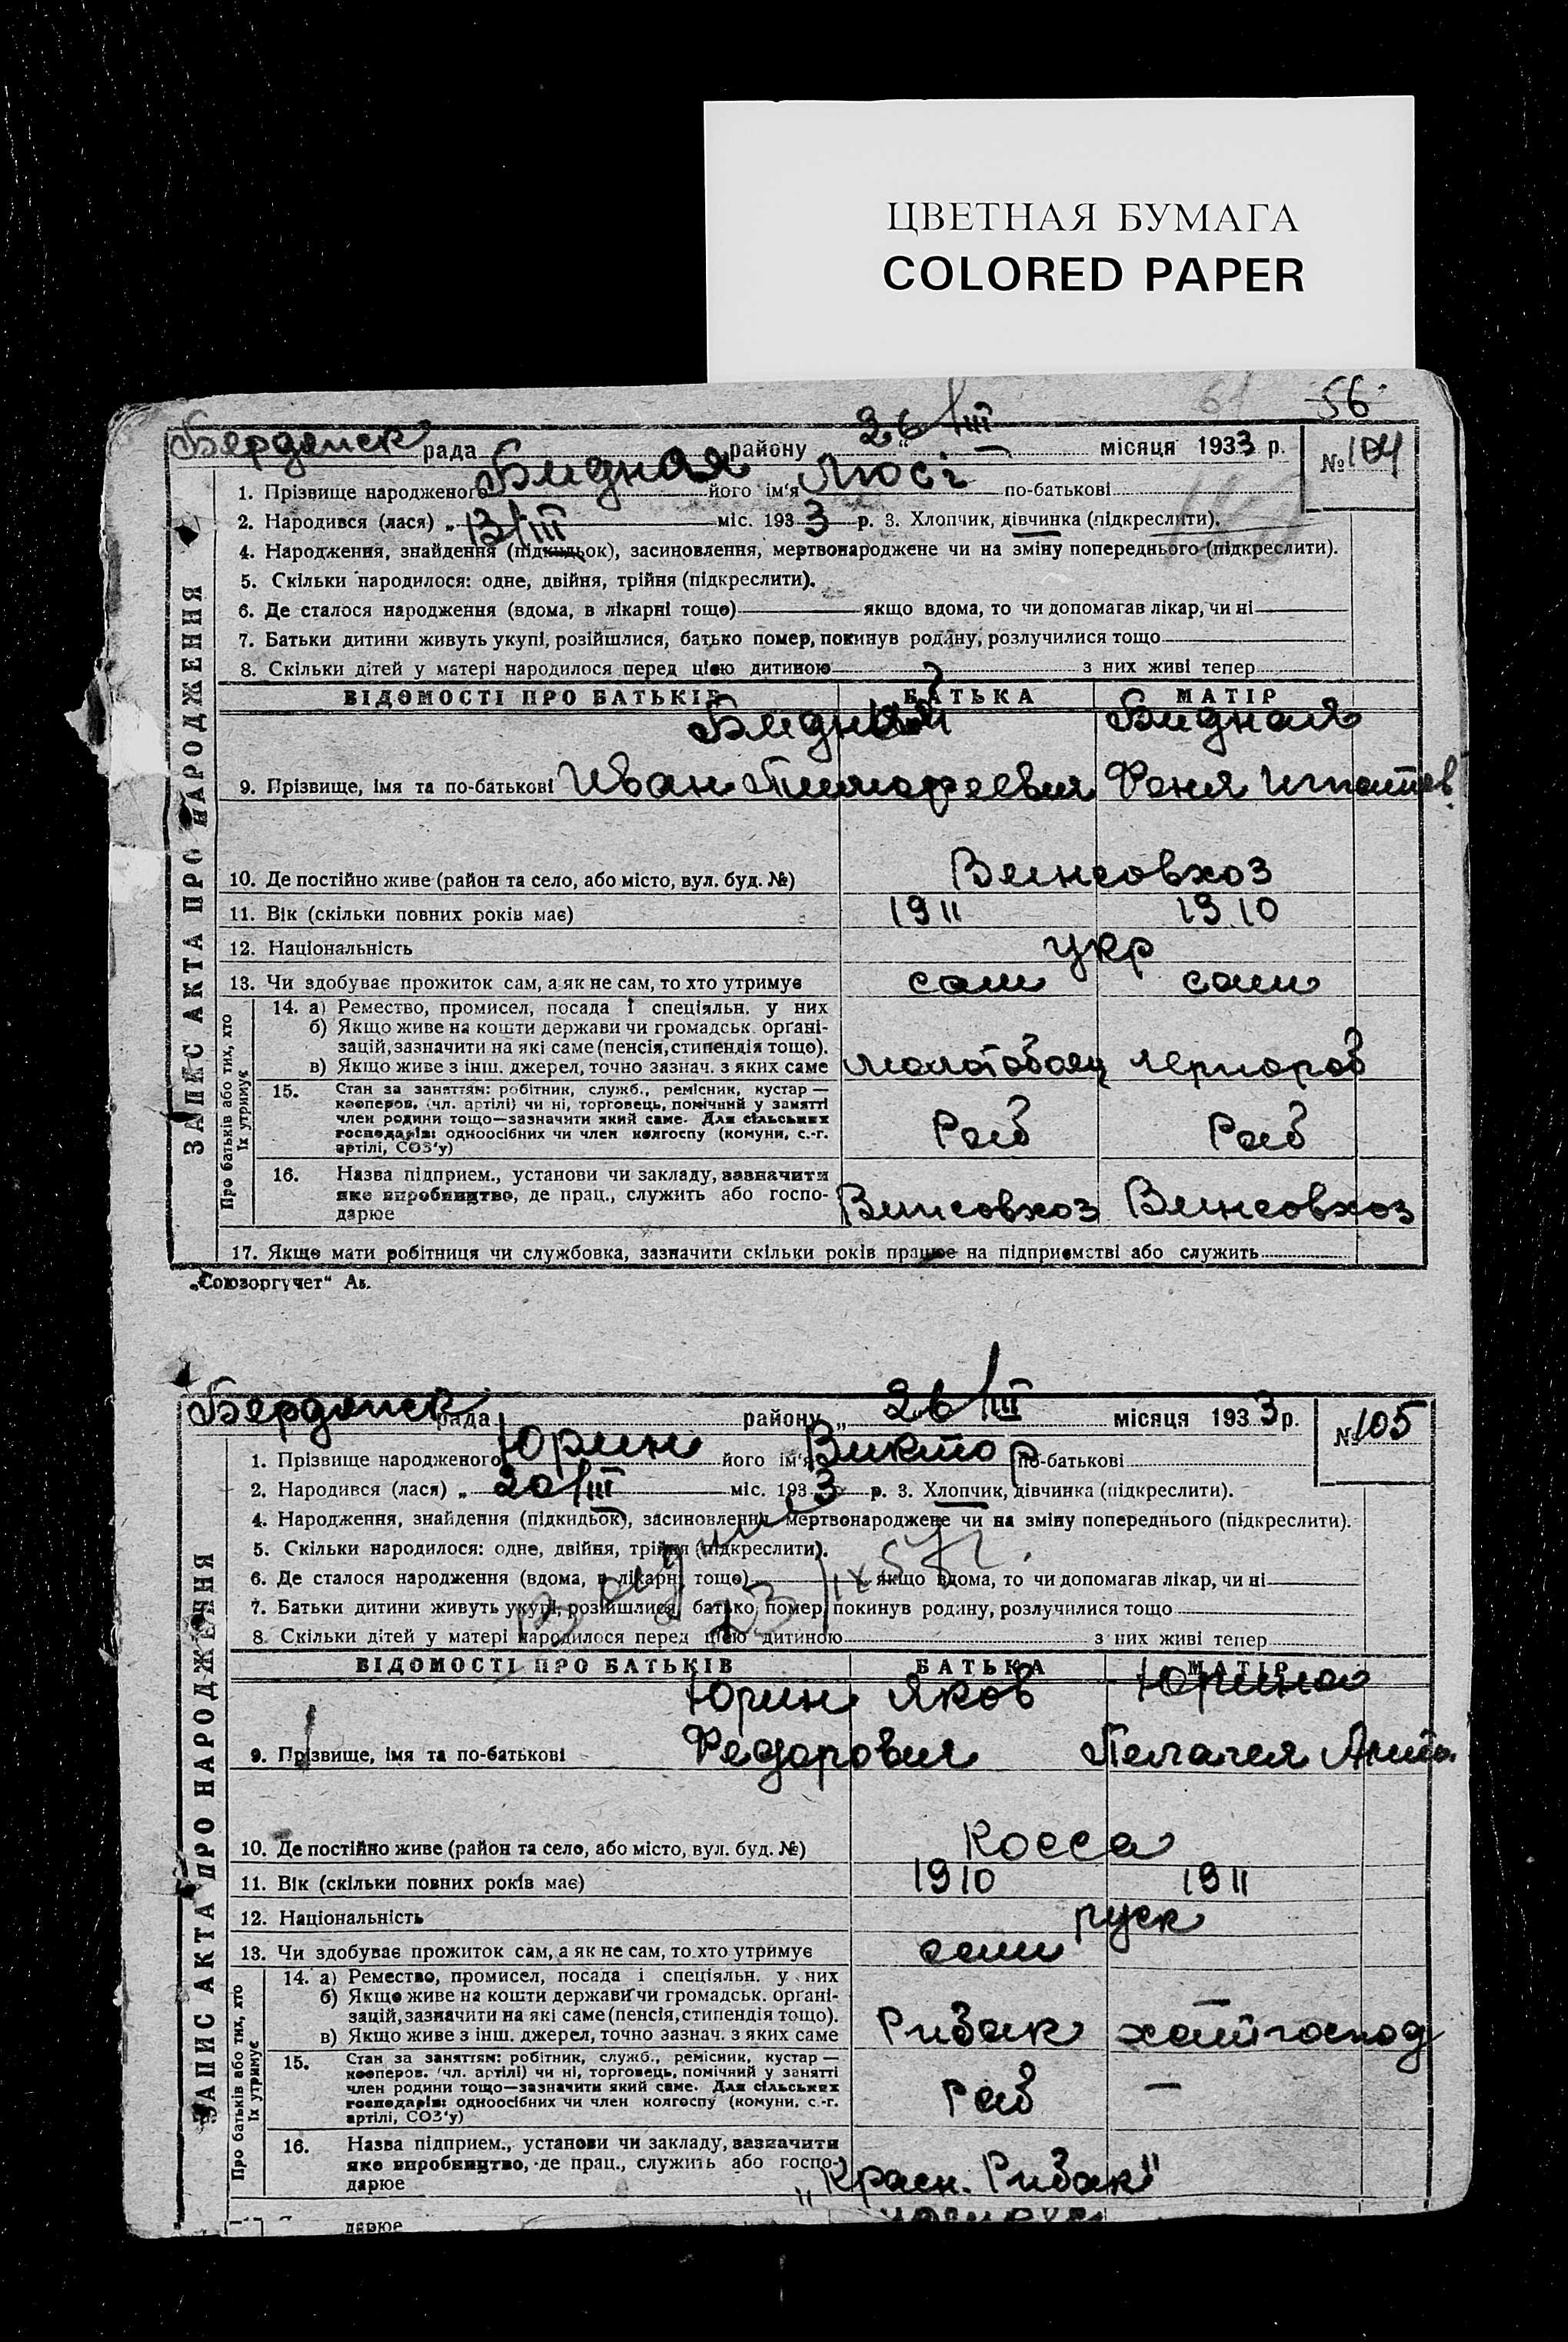 ЦВЕТНАЯ БУМАГА
COLORED PAPER
61 56
Бердянск рада району „ 26/III “ місяця 1933 р. № 104
1. Прізвище народженого Бидная його ім'я Люсі по-батькові
2. Народився (лася) „ 13/III міс. 1933 р. 3. Хлопчик, дівчинка (підкреслити).
4. Народження, знайдення (підкидьок), засиновлення, мертвонароджене чи на зміну попереднього (підкреслити).
5. Скільки народилося: одне, двійня, трійня (підкреслити).
6. Де сталося народження (вдома, в лікарні тощо) якщо вдома, то чи допомагав лікар, чи ні
7. Батьки дитини живуть укупі, розійшлися, батько помер, покинув родину, розлучилися тощо
8. Скільки дітей у матері народилося перед цією дитиною з них живі тепер
ВІДОМОСТІ ПРО БАТЬКІВ БАТЬКА МАТІР
Бидный Бидная
9. Прізвище, імя та по-батькові Иван Тимофеевич Феня Игнатев
10. Де постійно живе (район та село, або місто, вул. буд. №) Винсовхоз
11. Вік (скільки повних років має) 1911 1910
12. Національність укр
13. Чи здобуває прожиток сам, а як не сам, то хто утримує сам сам
14. а) Ремество, промисел, посада і спеціяльн. у них
б) Якщо живе на кошти держави чи громадськ. орґані-
зацій, зазначити на які саме (пенсія, стипендія тощо).
в) Якщо живе з інш. джерел, точно зазнач. з яких саме молотобоец чернораб
15. Стан за заняттям: робітник, служб., ремісник, кустар —
кооперов. (чл. артілі) чи ні, торговець, помічний у занятті
член родини тощо—зазначити який саме. Для сільських
господарів: одноосібних чи член колгоспу (комуни, с.-г.
артілі, СОЗ'у) Раб Раб
16. Назва підприєм., установи чи закладу, зазначити
яке виробництво, де прац., служить або госпо-
дарює Винсовхоз Винсовхоз
17. Якщо мати робітниця чи службовка, зазначити скільки років працює на підприємстві або служить
ЗАПИС АКТА ПРО НАРОДЖЕННЯ
Про батьків або тих, хто їх утримує
„Союзоргучет“ Ак.
Бердянск рада району „ 26/III місяця 1933 р. № 105
1. Прізвище народженого Юрин його ім'я Виктор по-батькові
2. Народився (лася) „ 20/III міс. 1933 р. 3. Хлопчик, дівчинка (підкреслити).
4. Народження, знайдення (підкидьок), засиновлення, мертвонароджене чи на зміну попереднього (підкреслити).
5. Скільки народилося: одне, двійня, трійня (підкреслити).
6. Де сталося народження (вдома, в лікарні тощо) якщо вдома, то чи допомагав лікар, чи ні
7. Батьки дитини живуть укупі, розійшлися, батько помер, покинув родину, розлучилися тощо
8. Скільки дітей у матері народилося перед цією дитиною з них живі тепер
ВІДОМОСТІ ПРО БАТЬКІВ БАТЬКА МАТІР
Юрин Яков Юрина
9. Прізвище, імя та по-батькові Федорович Пелагея
10. Де постійно живе (район та село, або місто, вул. буд. №) Косса
11. Вік (скільки повних років має) 1910 1911
12. Національність руск
13. Чи здобуває прожиток сам, а як не сам, то хто утримує сам
14. а) Ремество, промисел, посада і спеціяльн. у них
б) Якщо живе на кошти держави чи громадськ. орґані-
зацій, зазначити на які саме (пенсія, стипендія тощо). —
в) Якщо живе з інш. джерел, точно зазнач. з яких саме Рибак хатгоспод
15. Стан за заняттям: робітник, служб., ремісник, кустар —
кооперов. (чл. артілі) чи ні, торговець, помічний у занятті
член родини тощо—зазначити який саме. Для сільських
господарів: одноосібних чи член колгоспу (комуни, с.-г.
артілі, СОЗ'у) Раб —
16. Назва підприєм., установи чи закладу, зазначити
яке виробництво, де прац., служить або госпо-
дарює „Красн. Рибак"
ЗАПИС АКТА ПРО НАРОДЖЕННЯ
Про батьків або тих, хто їх утримує
дарює